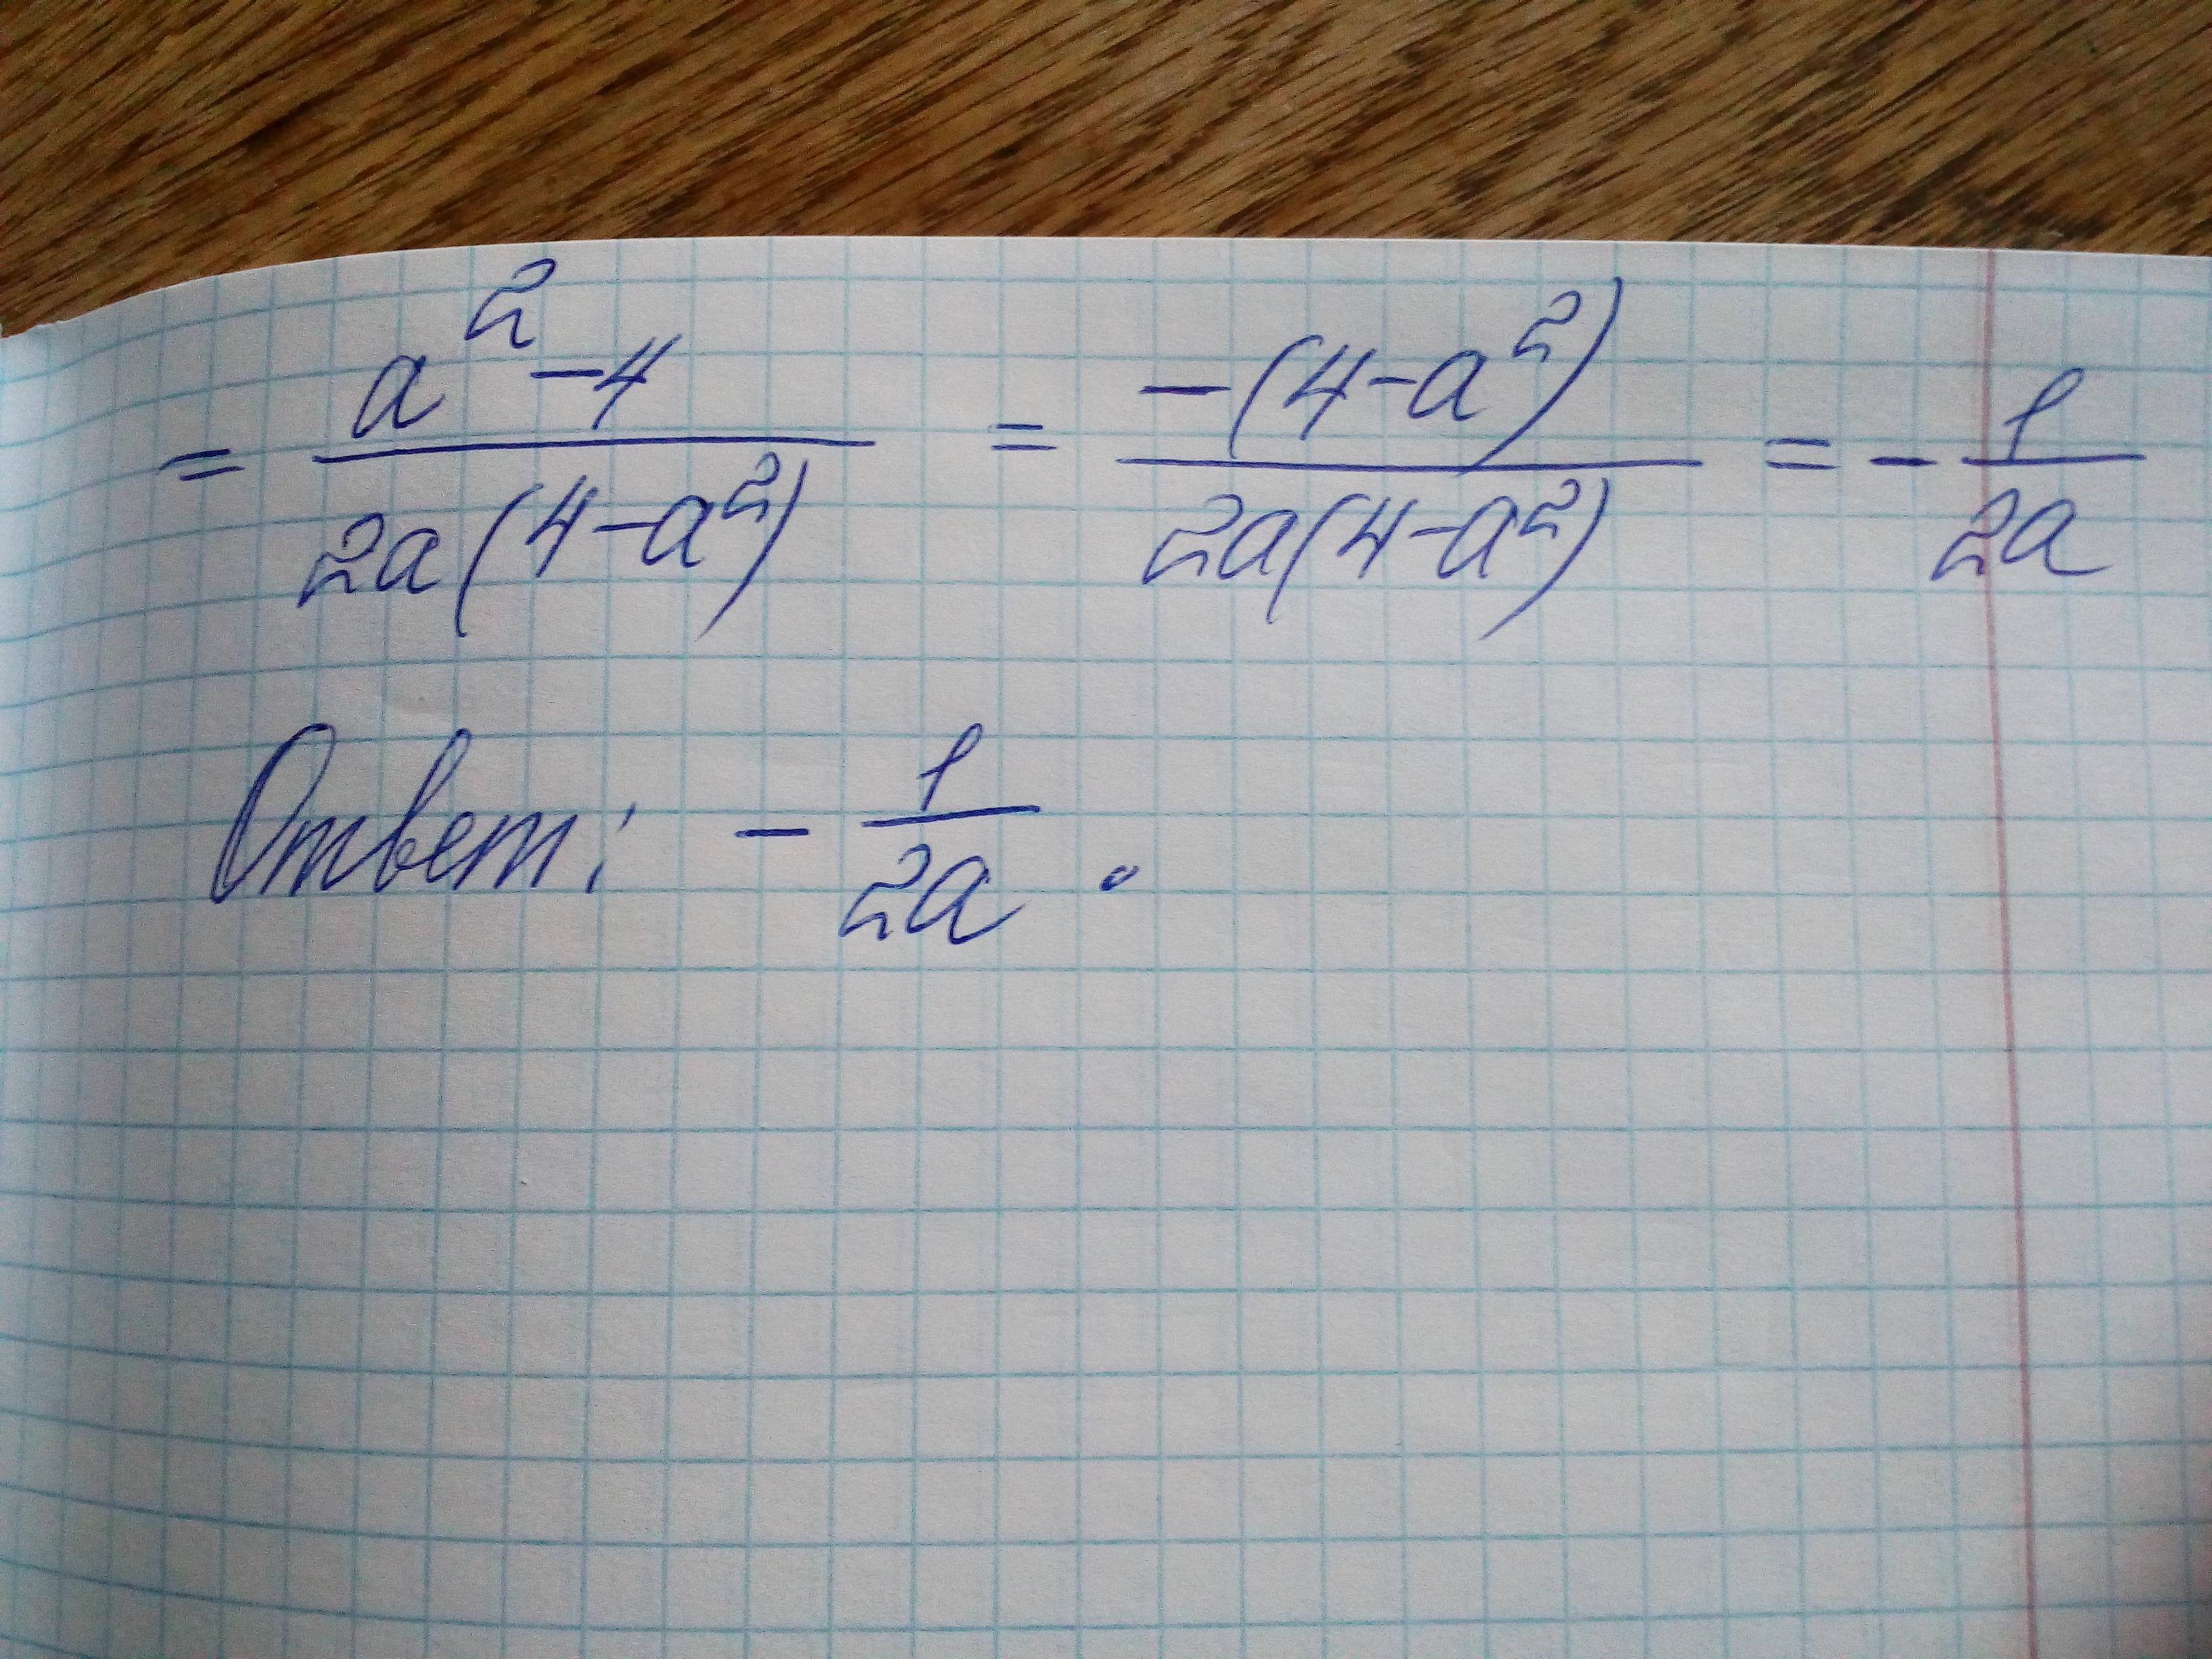 = \frac{a^2-4}{2a(4-a^2)} = \frac{-(4-a^2)}{2a(4-a^2)} = -\frac{1}{2a}
Ответ: -\frac{1}{2a}.